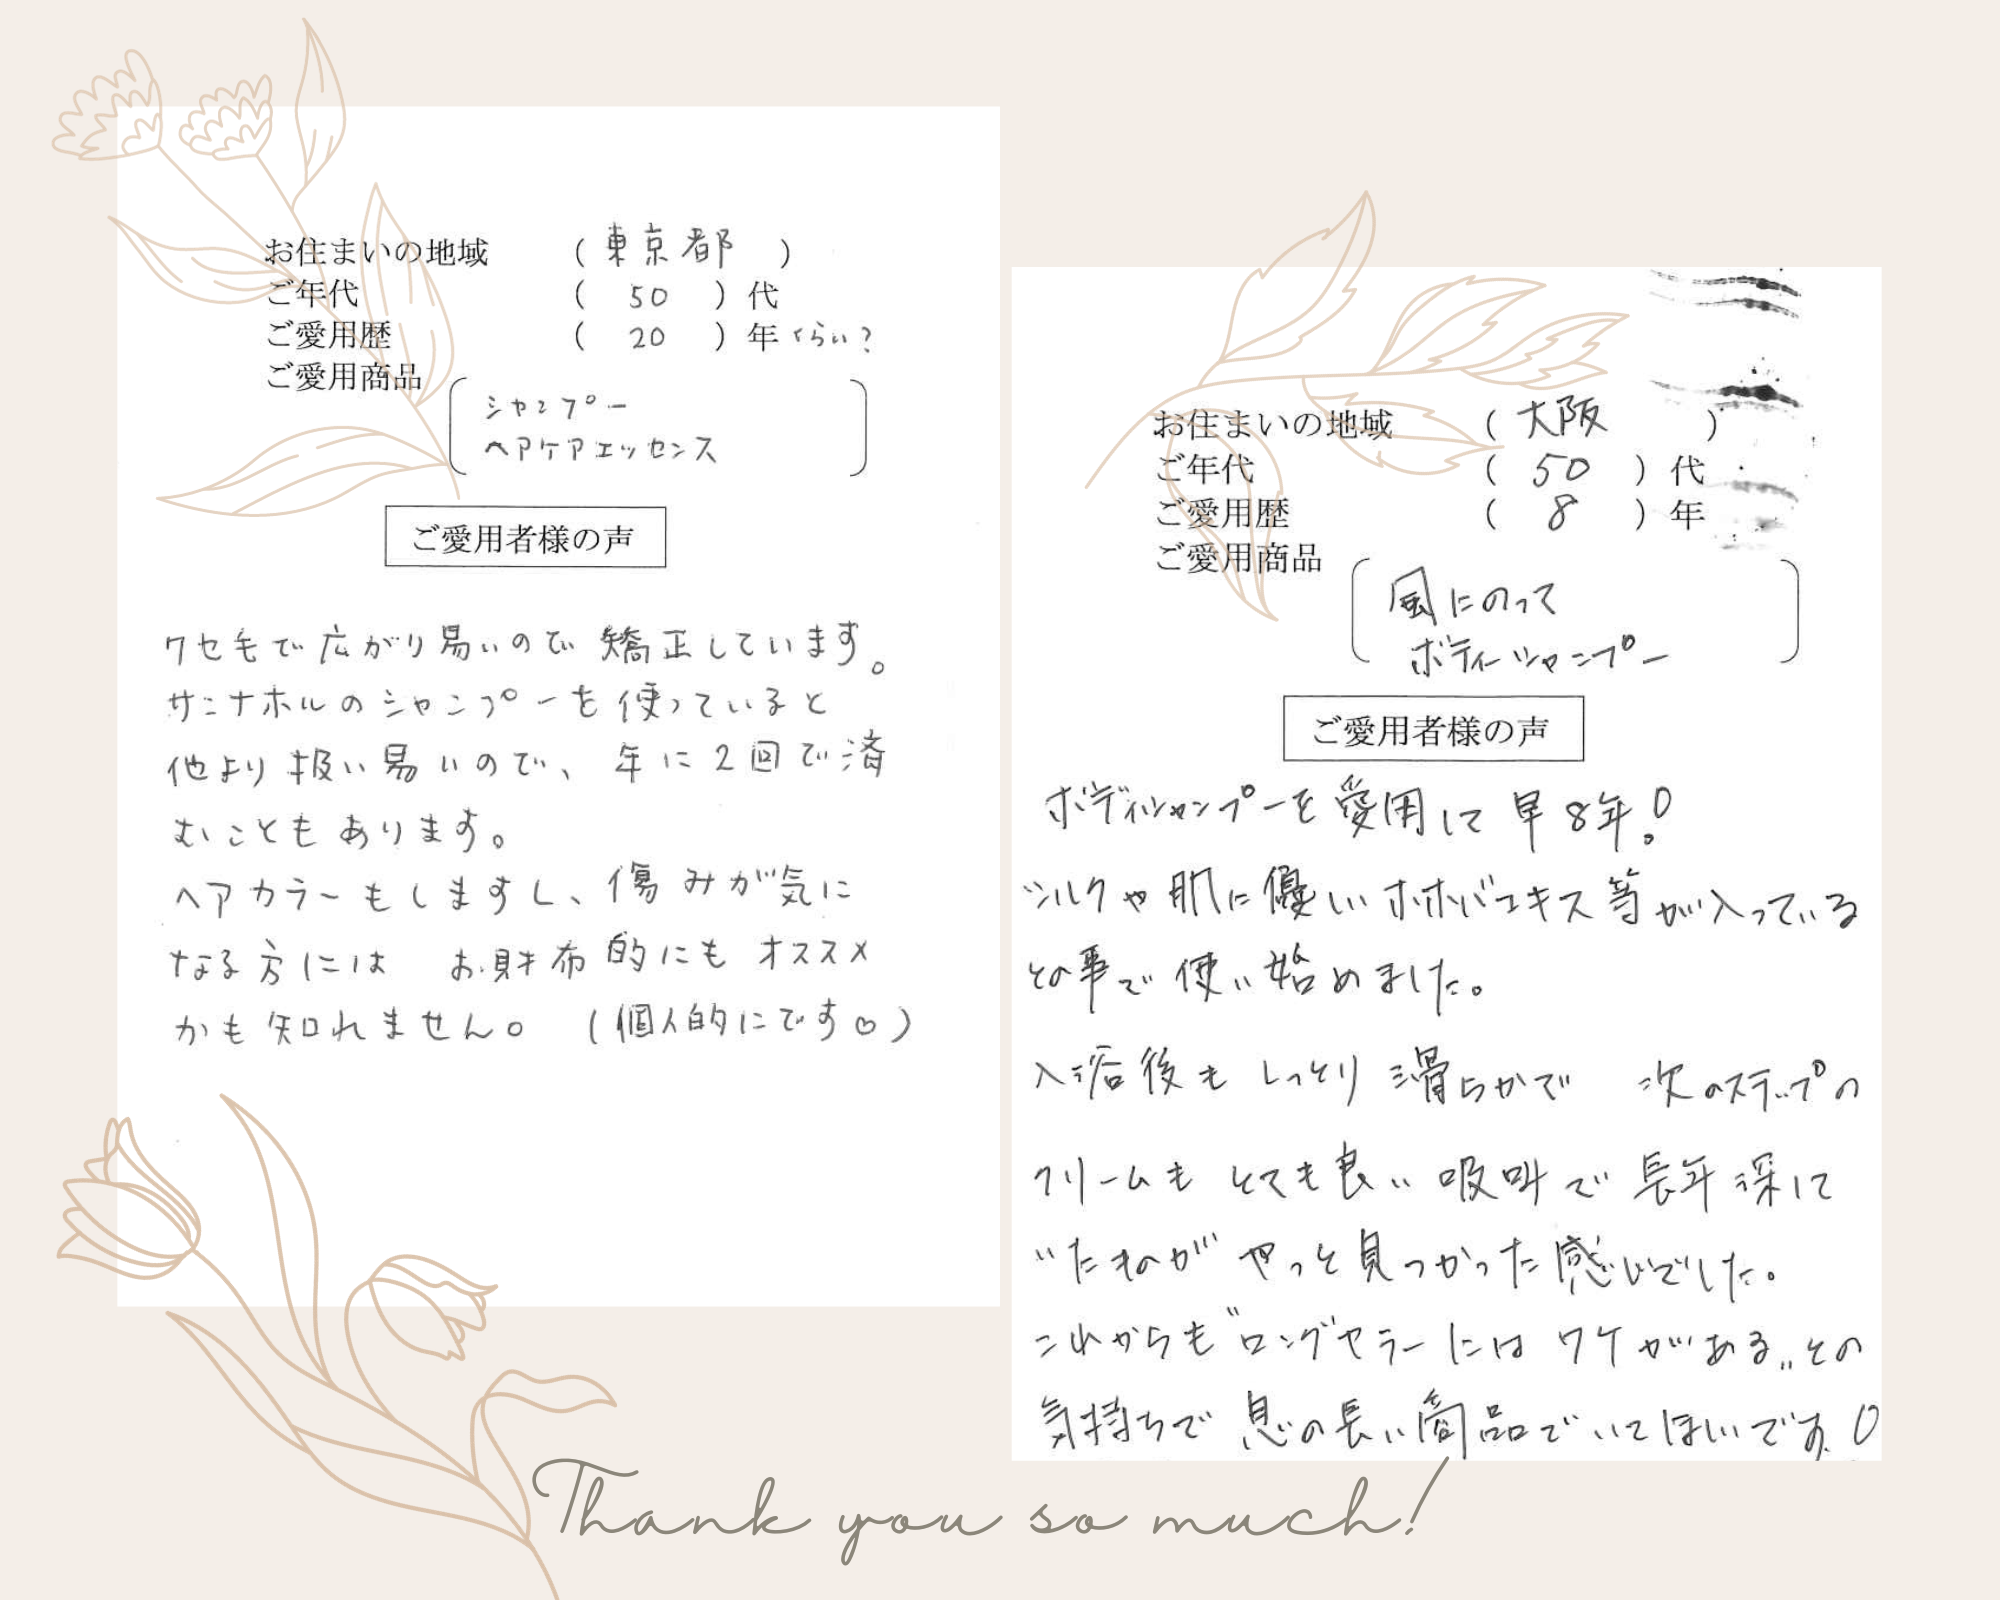 お住まいの地域 （ 東京都 ）
ご年代 （ 50 ）代
ご愛用歴 （ 20 ）年くらい？
ご愛用商品
シャンプー
ヘアケアエッセンス
ご愛用者様の声
クセ毛で広がり易いので矯正しています。
サニナホルのシャンプーを使っていると
他より扱い易いので、年に2回で済
むこともあります。
ヘアカラーもしますし、傷みが気に
なる方には お財布的にもオススメ
かも知れません。（個人的にです♡）
お住まいの地域 （ 大阪 ）
ご年代 （ 50 ）代
ご愛用歴 （ 8 ）年
ご愛用商品
風にのって
ボディーシャンプー
ご愛用者様の声
ボディシャンプーを愛用して早8年！
シルクや肌に優しいホホバエキス等が入っている
との事で使い始めました。
入浴後もしっとり滑らかで 次のステップの
クリームもとても良い吸収で長年探して
いたものがやっと見つかった感じでした。
これからも"ロングセラーにはワケがある"その
気持ちで息の長い商品でいてほしいです！
Thank you so much!